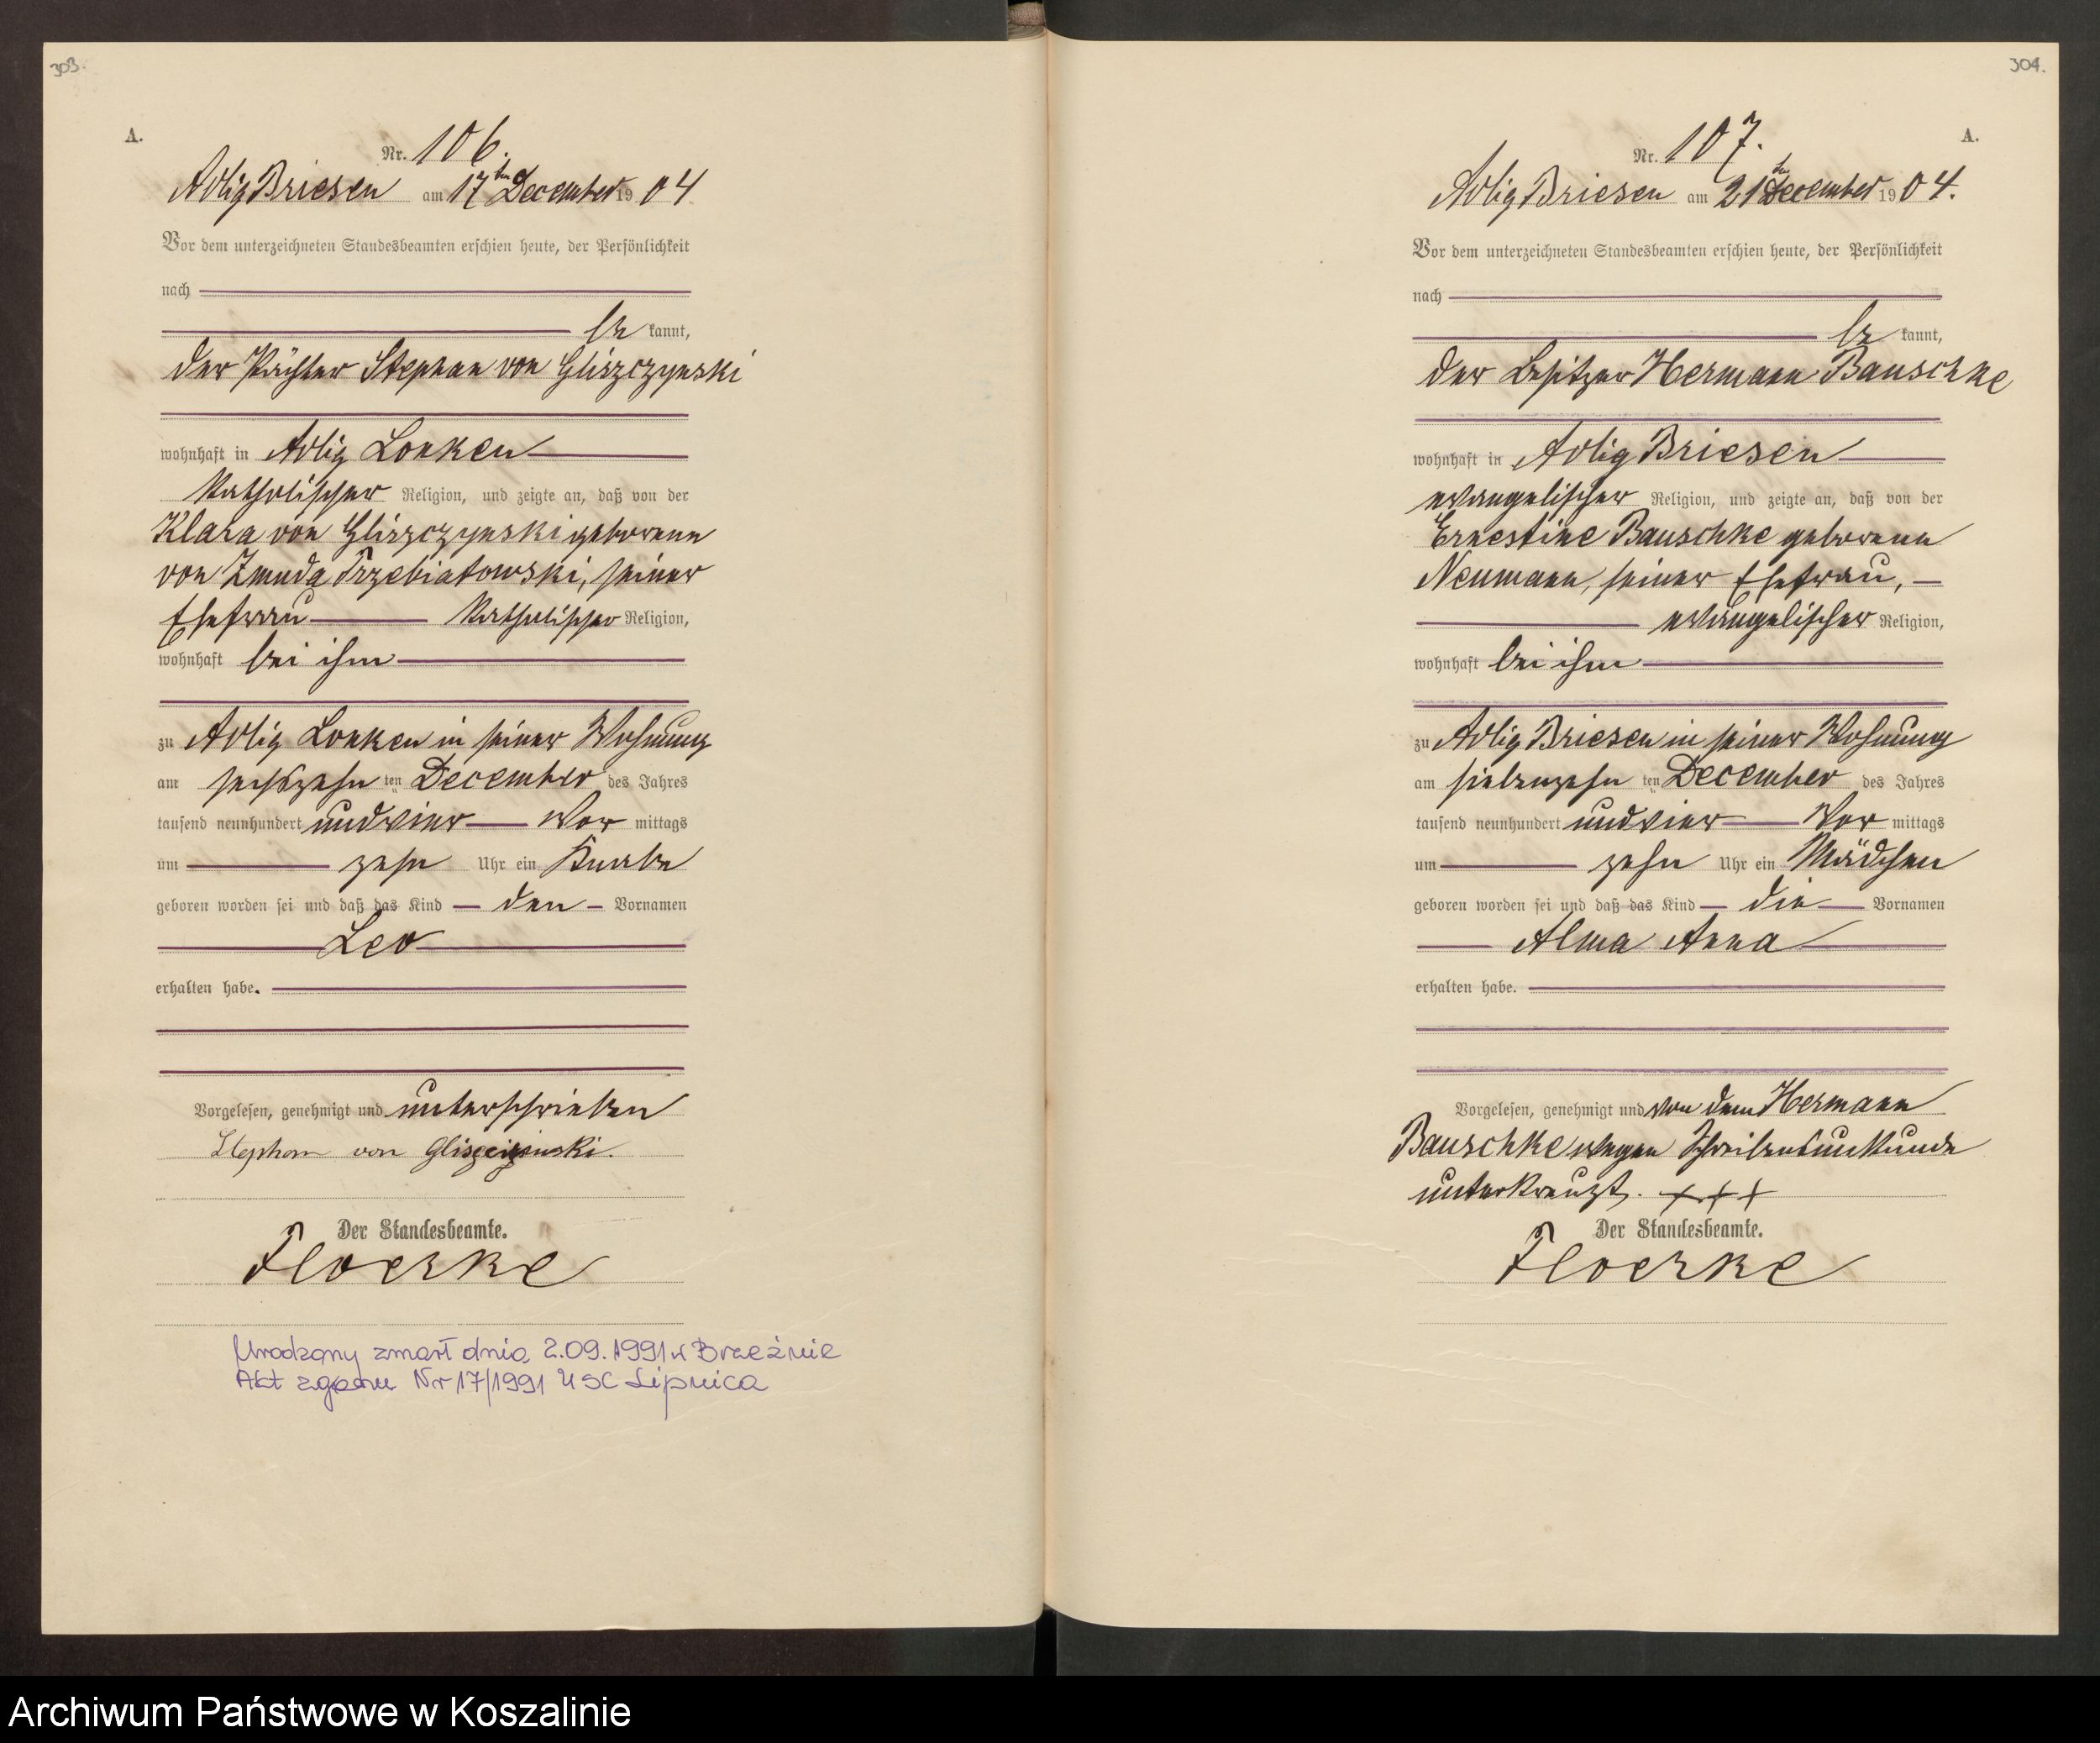 303.
A.
Nr. 106.
Adlig Briesen am 17ten December 1904
Vor dem unterzeichneten Standesbeamten erschien heute, der Persönlichkeit
nach
be kannt,
der Pächter Stephan von Gliszczynski
wohnhaft in Adlig Lonken
katholischer Religion, und zeigte an, daß von der
Klara von Gliszczynski geborenen
von Zmuda Trzebiatowski, seiner
Ehefrau katholischer Religion,
wohnhaft bei ihm
zu Adlig Lonken in seiner Wohnung
am sechszehn ten December des Jahres
tausend neunhundert und vier Vor mittags
um zehn Uhr ein Knabe
geboren worden sei und daß das Kind den Vornamen
Leo
erhalten habe.
Vorgelesen, genehmigt und unterschrieben
Stephan von Gliszczynski.
Der Standesbeamte.
Floerke
Urodzony zmarł dnia 2.09.1991 w Brzeźnie
Akt zgonu Nr 17/1991 USC Lipnica
304.
A.
Nr. 107.
Adlig Briesen am 21ten December 1904.
Vor dem unterzeichneten Standesbeamten erschien heute, der Persönlichkeit
nach
be kannt,
der Besitzer Hermann Bauschke
wohnhaft in Adlig Briesen
evangelischer Religion, und zeigte an, daß von der
Ernestine Bauschke geborenen
Neumann, seiner Ehefrau,
evangelischer Religion,
wohnhaft bei ihm
zu Adlig Briesen in seiner Wohnung
am siebenzehn ten December des Jahres
tausend neunhundert und vier Vor mittags
um zehn Uhr ein Mädchen
geboren worden sei und daß das Kind die Vornamen
Alma Anna
erhalten habe.
Vorgelesen, genehmigt und von dem Hermann
Bauschke wegen Schreibensunkunde
unterkreuzt. +++
Der Standesbeamte.
Floerke
Archiwum Państwowe w Koszalinie